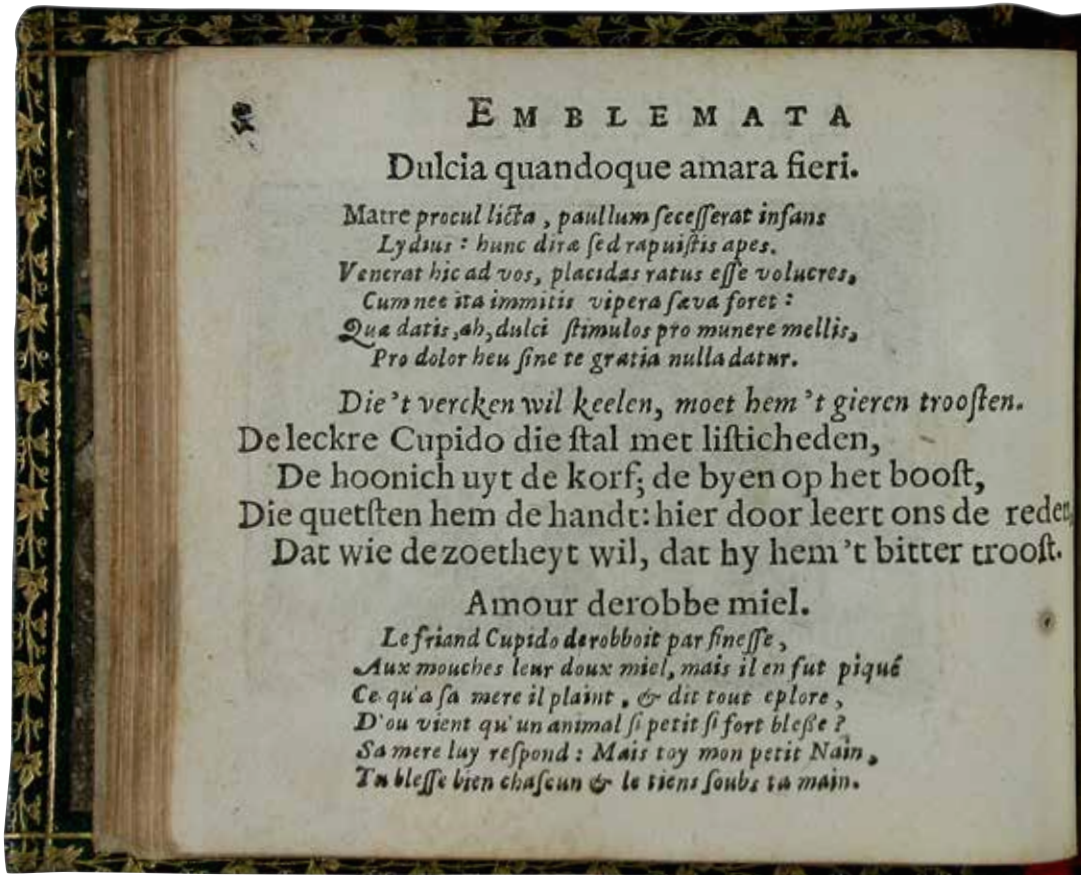 EMBLEMATA
Dulcia quandoque amara fieri.
Matre procul licta, paullum ſeceſſerat infans
Lydius: hunc diræ ſed rapuiſtis apes.
Venerat hic ad vos, placidas ratus eſſe volucres,
Cum nec ita immitis vipera ſæva foret:
Quæ datis, ah, dulci ſtimulos pro munere mellis,
Pro dolor heu ſine te gratia nulla datur.
Die't vercken wil keelen, moet hem 't gieren trooſten.
De leckre Cupido die ſtal met liſticheden,
De hoonich uyt de korf; de byen op het booſt,
Die quetſten hem de handt: hier door leert ons de reden,
Dat wie de zoetheyt wil, dat hy hem 't bitter trooſt.
Amour derobbe miel.
Le friand Cupido derobboit par fineſſe,
Aux mouches leur doux miel, mais il en fut piqué
Ce qu'a ſa mere il plaint, & dit tout eplore,
D'ou vient qu'un animal ſi petit ſi fort bleße?
Sa mere luy reſpond: Mais toy mon petit Nain,
Tu bleſſe bien chaſcun & le tiens ſoubs ta main.